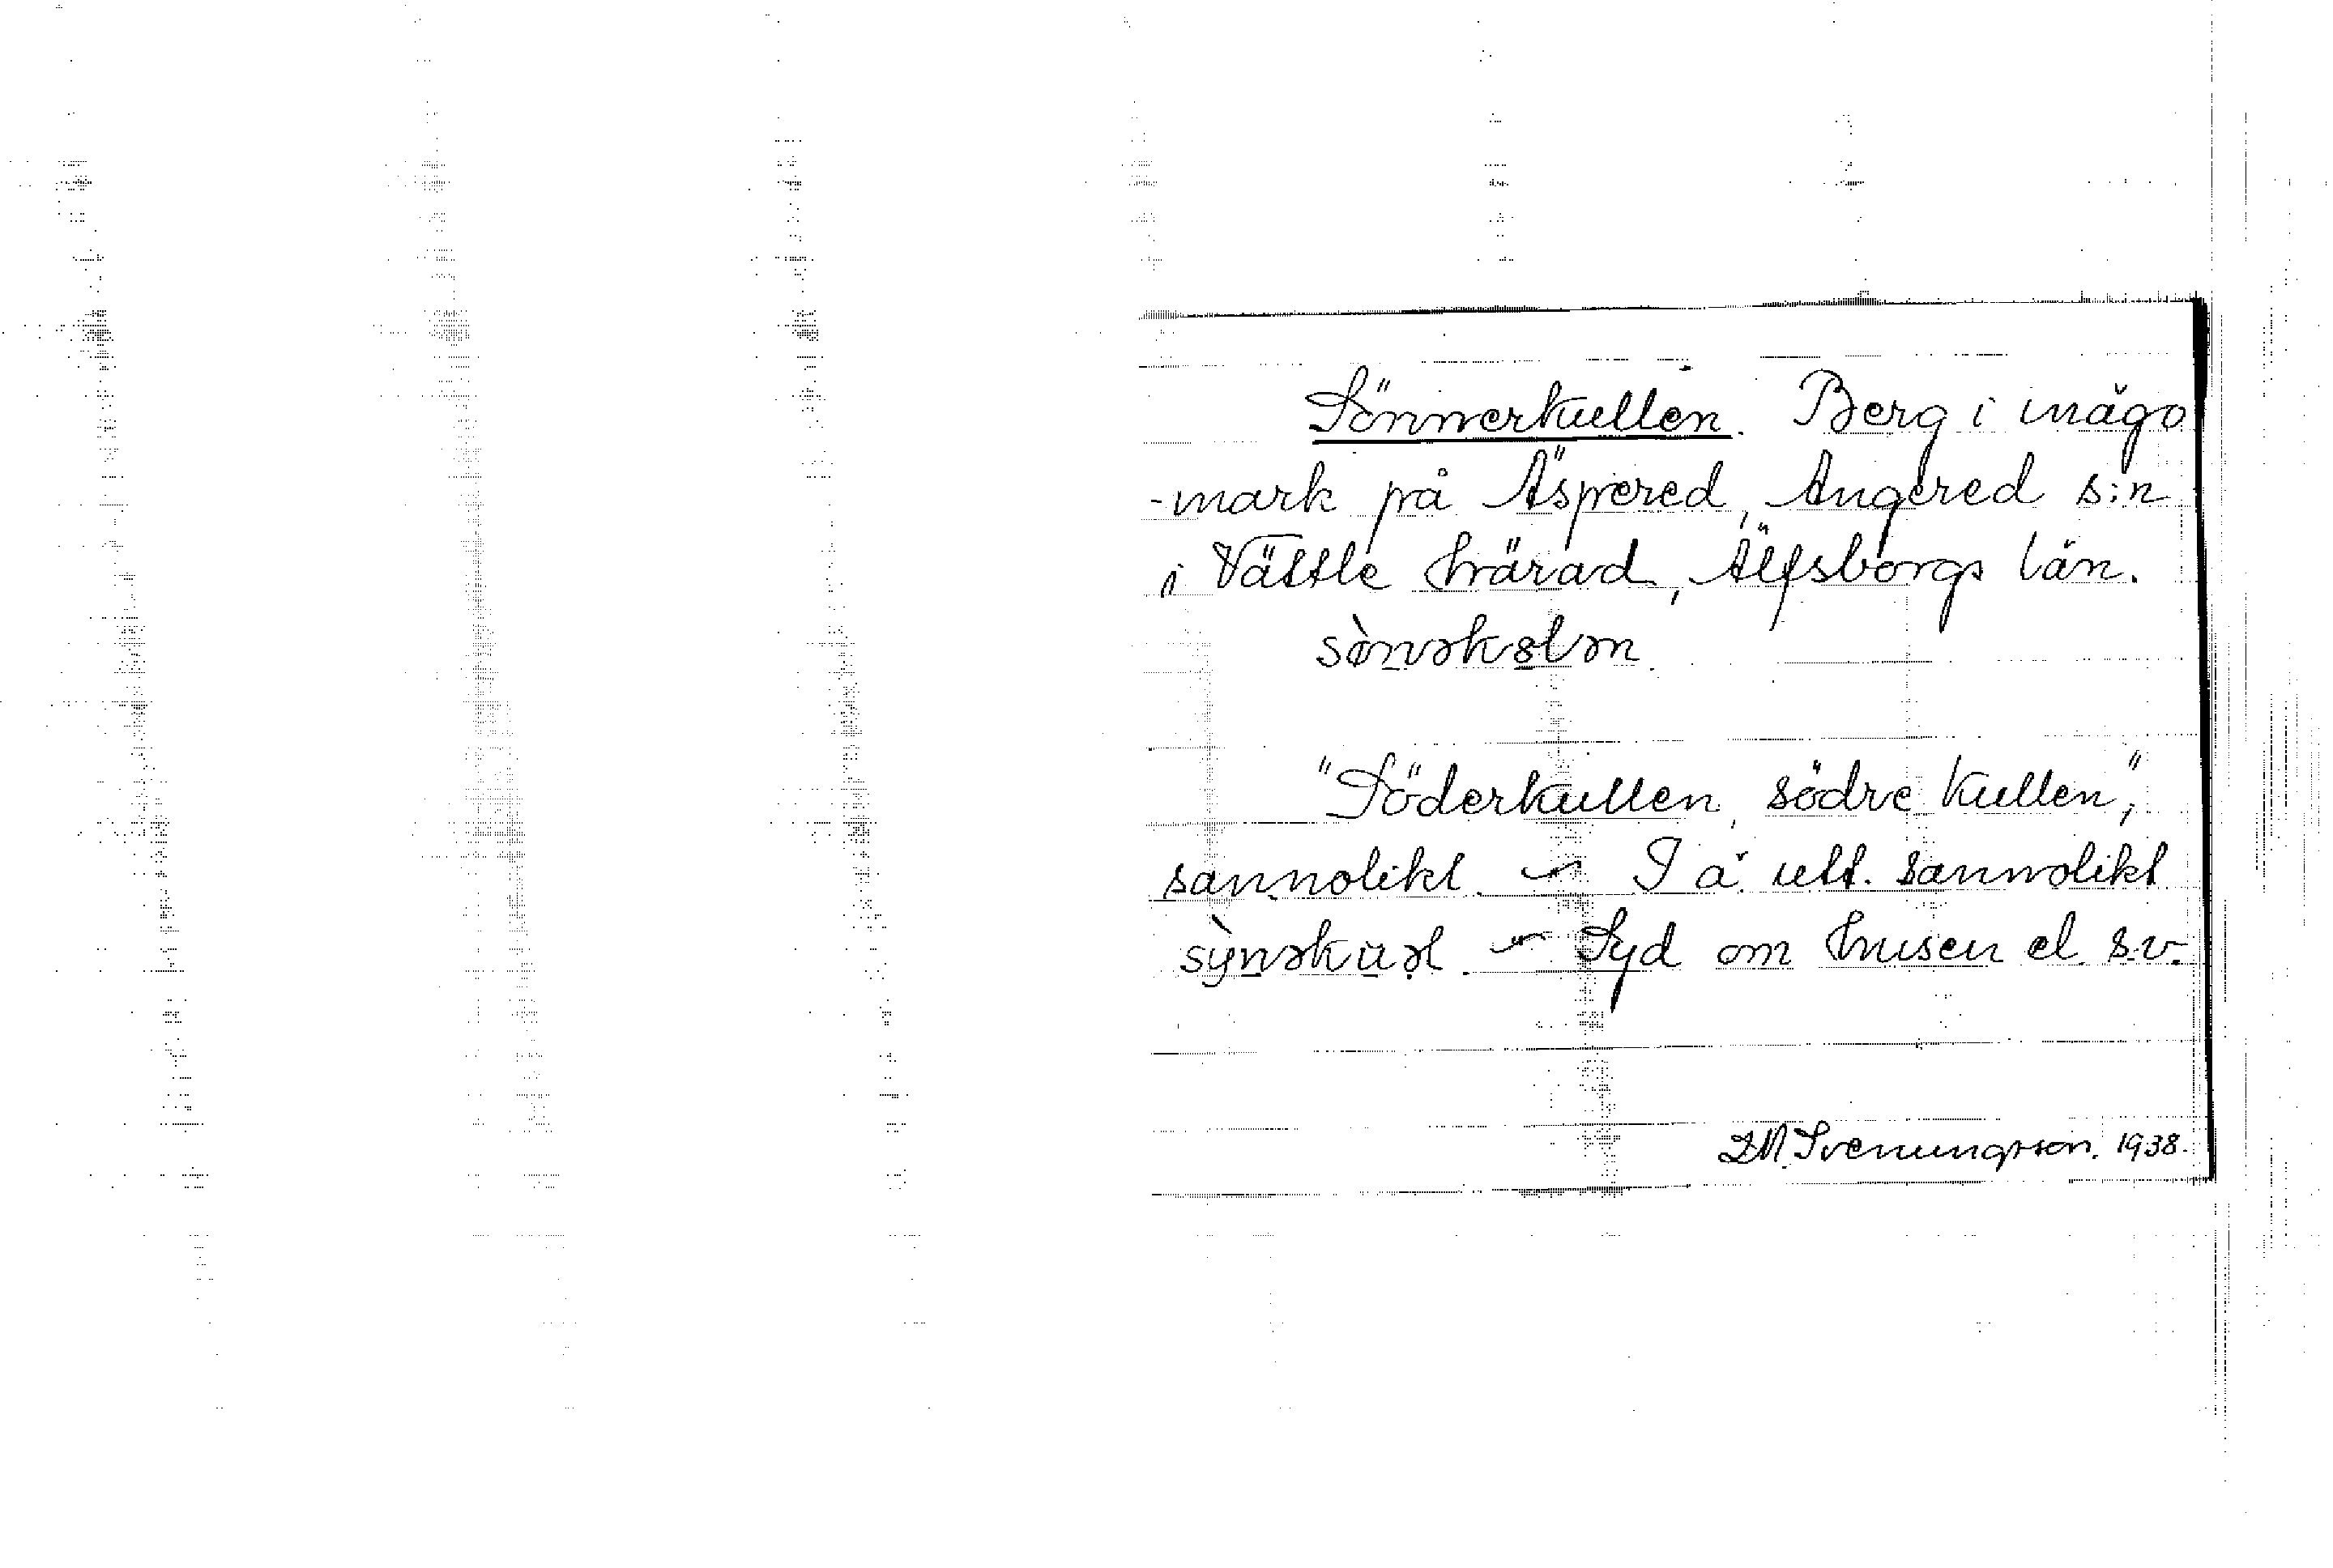 Sönnerkullen. Berg i inägo
-mark på Äspered, Angered s:n
i Vättle härad, Älfsborgs län.
"Söderkullen, södre kullen",
sannolikt. ~ I ä. utt. sannolikt
~ Syd om husen el. s.v.
Svenungsson. 1938.